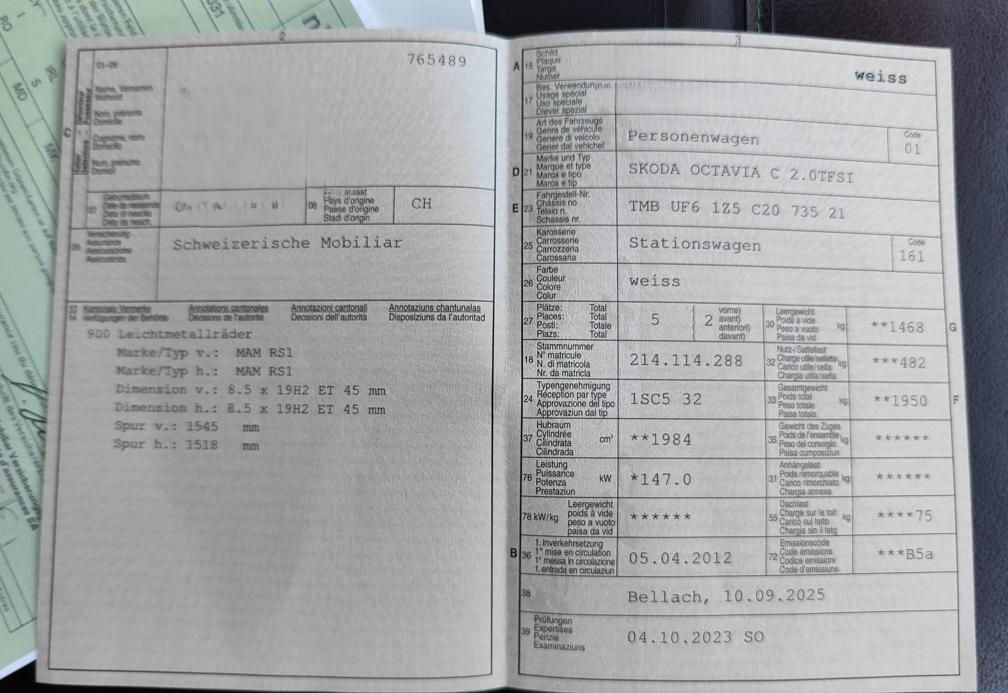 2
765489
01-06
C
Name, Vornamen
Wohnort
Nom, prénoms
Domicile
Cognome, nomi
Domicilio
Num, prenums
Domicil
07
08
Pays d'origine
Paese d'origine
Stadi d'origin
CH
09
Versicherung
Assurance
Assicurazione
Assicuranza
Schweizerische Mobiliar
Kantonale Vermerke
Verfügungen der Behörde
Annotations cantonales
Décisions de l'autorité
Annotazioni cantonali
Decisioni dell'autorità
Annotaziuns chantunalas
Disposiziuns da l'autoritad
900 Leichtmetallräder
Marke/Typ v.: MAM RS1
Marke/Typ h.: MAM RS1
Dimension v.: 8.5 x 19H2 ET 45 mm
Dimension h.: 8.5 x 19H2 ET 45 mm
Spur v.: 1545 mm
Spur h.: 1518 mm
3
A 15
Schild
Plaque
Targa
Numer
weiss
17
Bes. Verwendung
Usage spécial
Uso speciale
Diever spezial
19
Art des Fahrzeugs
Genre de véhicule
Genere di veicolo
Gener dal vehichel
Personenwagen
Code
01
D 21
Marke und Typ
Marque et type
Marca e tipo
Marca e tip
SKODA OCTAVIA C 2.0TFSI
E 23
Fahrgestell-Nr.
Châssis no
Telaio n.
Schassis nr.
TMB UF6 1Z5 C20 735 21
25
Karosserie
Carrosserie
Carrozzeria
Carossaria
Stationswagen
Code
161
26
Farbe
Couleur
Colore
Colur
weiss
27
Plätze: Total
Places: Total
Posti: Totale
Plazs: Total
5
2
vorne)
avant)
anteriori)
davant)
30
Leergewicht
Poids à vide
Peso a vuoto
Paisa da vid
kg
**1468
G
18
Stammnummer
N° matricule
N. di matricola
Nr. da matricla
214.114.288
32
Nutz-/Sattellast
Charge utile/sellette
Carico utile/sella
Chargia utila/sella
kg
***482
24
Typengenehmigung
Réception par type
Approvazione del tipo
Approvaziun dal tip
1SC5 32
33
Gesamtgewicht
Poids total
Peso totale
Paisa totala
kg
**1950
F
37
Hubraum
Cylindrée
Cilindrata
Cilindrada
cm³
**1984
35
Gewicht des Zuges
Poids de l'ensemble
Peso del convoglio
Paisa cumposiziun
kg
******
76
Leistung
Puissance
Potenza
Prestaziun
kW
*147.0
31
Anhängelast
Poids remorquable
Carico rimorchiato
Chargia annexa
kg
******
78 kW/kg
Leergewicht
poids à vide
peso a vuoto
paisa da vid
******
55
Dachlast
Charge sur le toit
Carico sul tetto
Chargia sin il tetg
kg
****75
B 36
1. Inverkehrsetzung
1re mise en circulation
1a messa in circolazione
1. entrada en circulaziun
05.04.2012
72
Emissionscode
Code émissions
Codice emissioni
Code d'emissiuns
***B5a
38
Bellach, 10.09.2025
39
Prüfungen
Expertises
Perizie
Examinaziuns
04.10.2023 SO